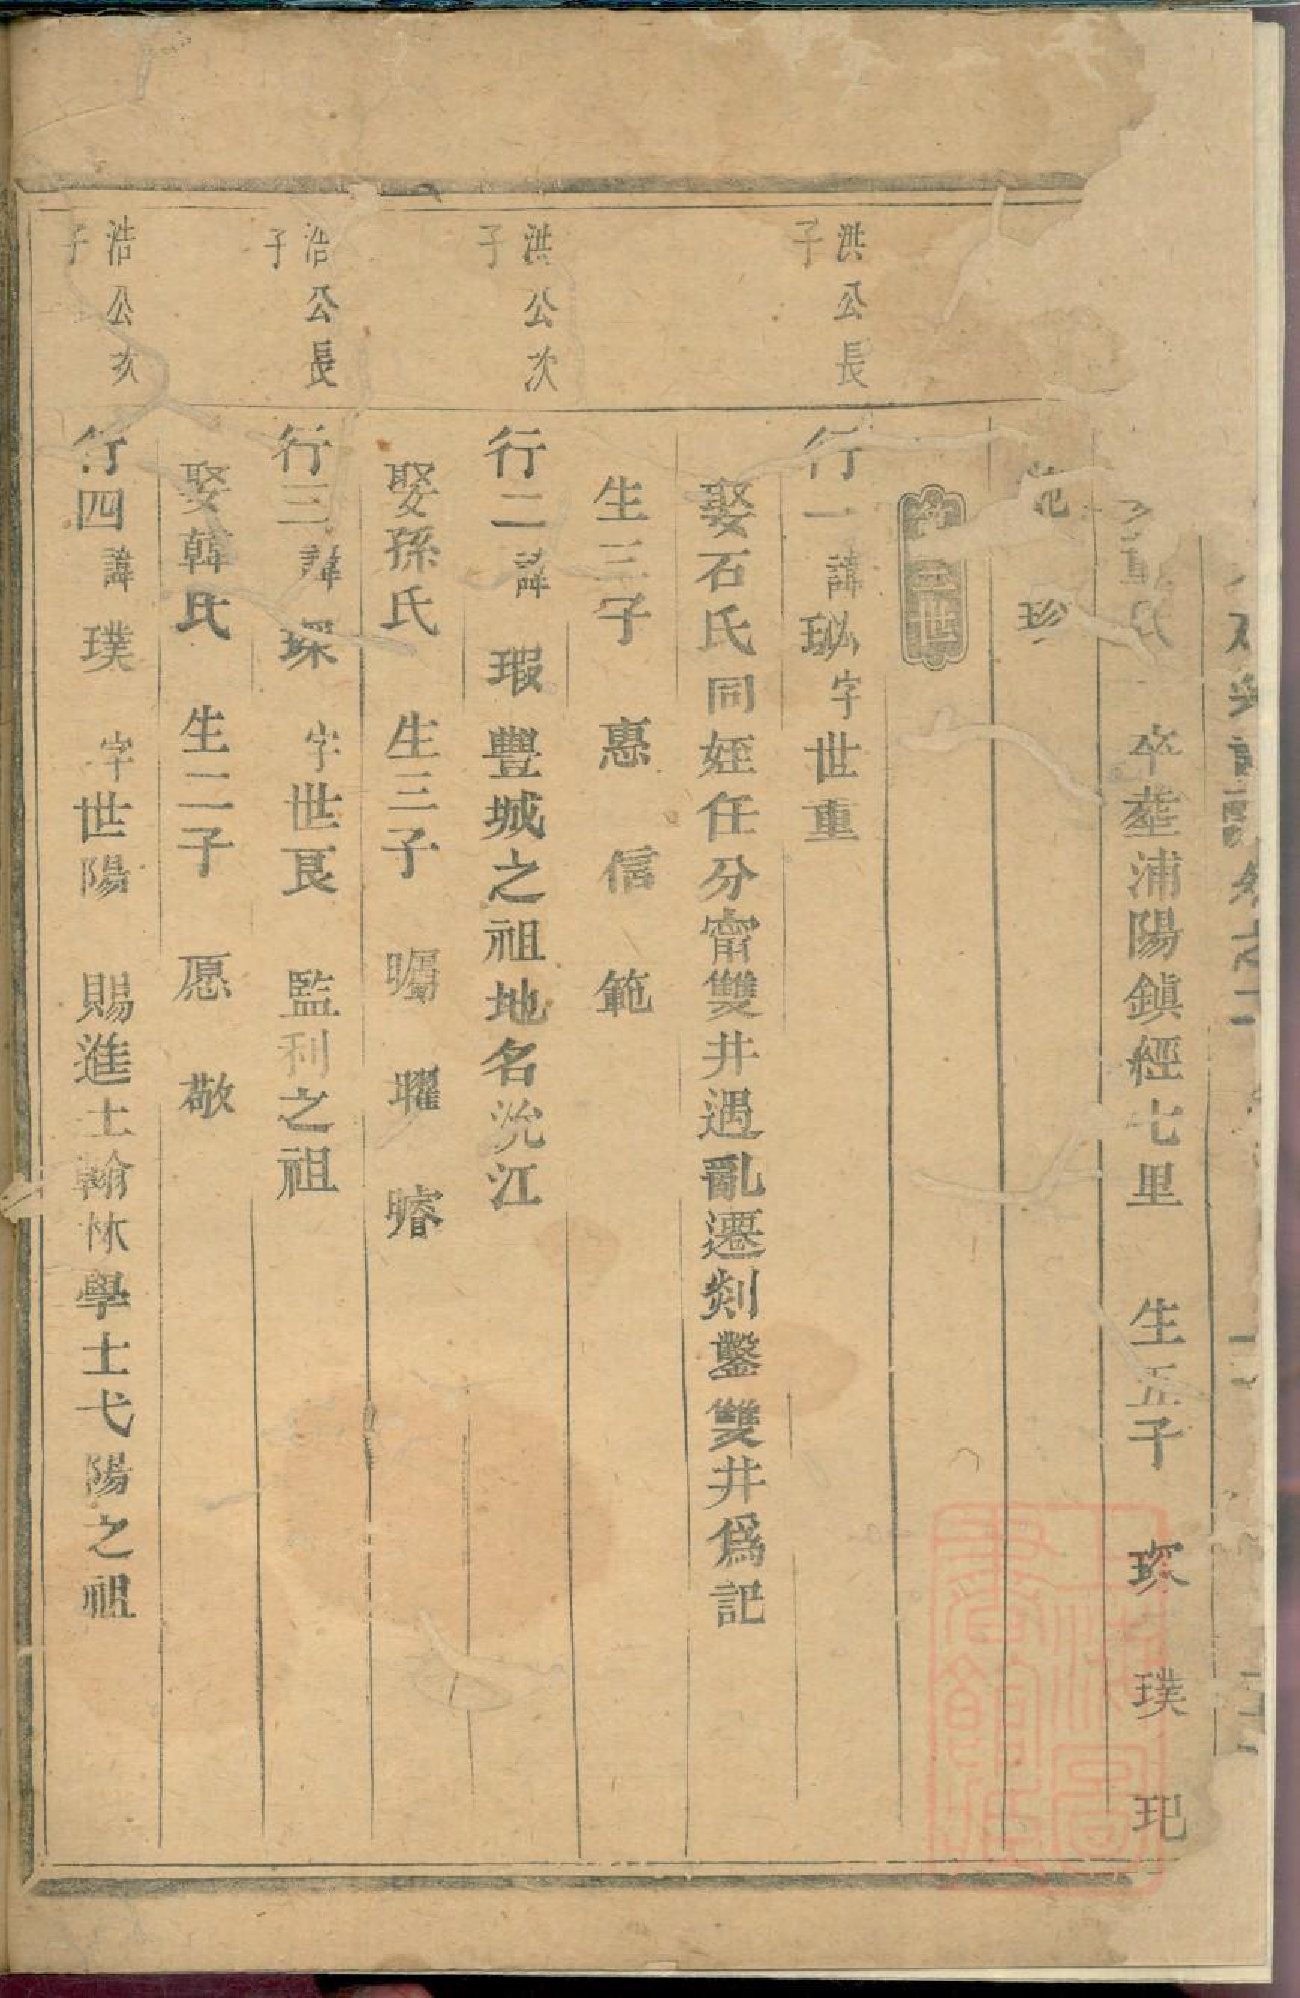 氏 卒塟浦陽鎮經七里 生五子 琛 璞 玘
珍
三世
洪公長子
行一諱珌字世重
娶石氏同姪任分甯雙井遇亂遷剡鑿雙井爲記
生三子 惪 信 範
洪公次子
行二諱瑕豐城之祖地名沇江
娶孫氏 生三子 曯 曜 㬜
浩公長子
行三諱琛字世艮 監利之祖
娶韓氏 生二子 愿 敬
浩公次子
行四諱璞字世陽 賜進士翰林學士弋陽之祖